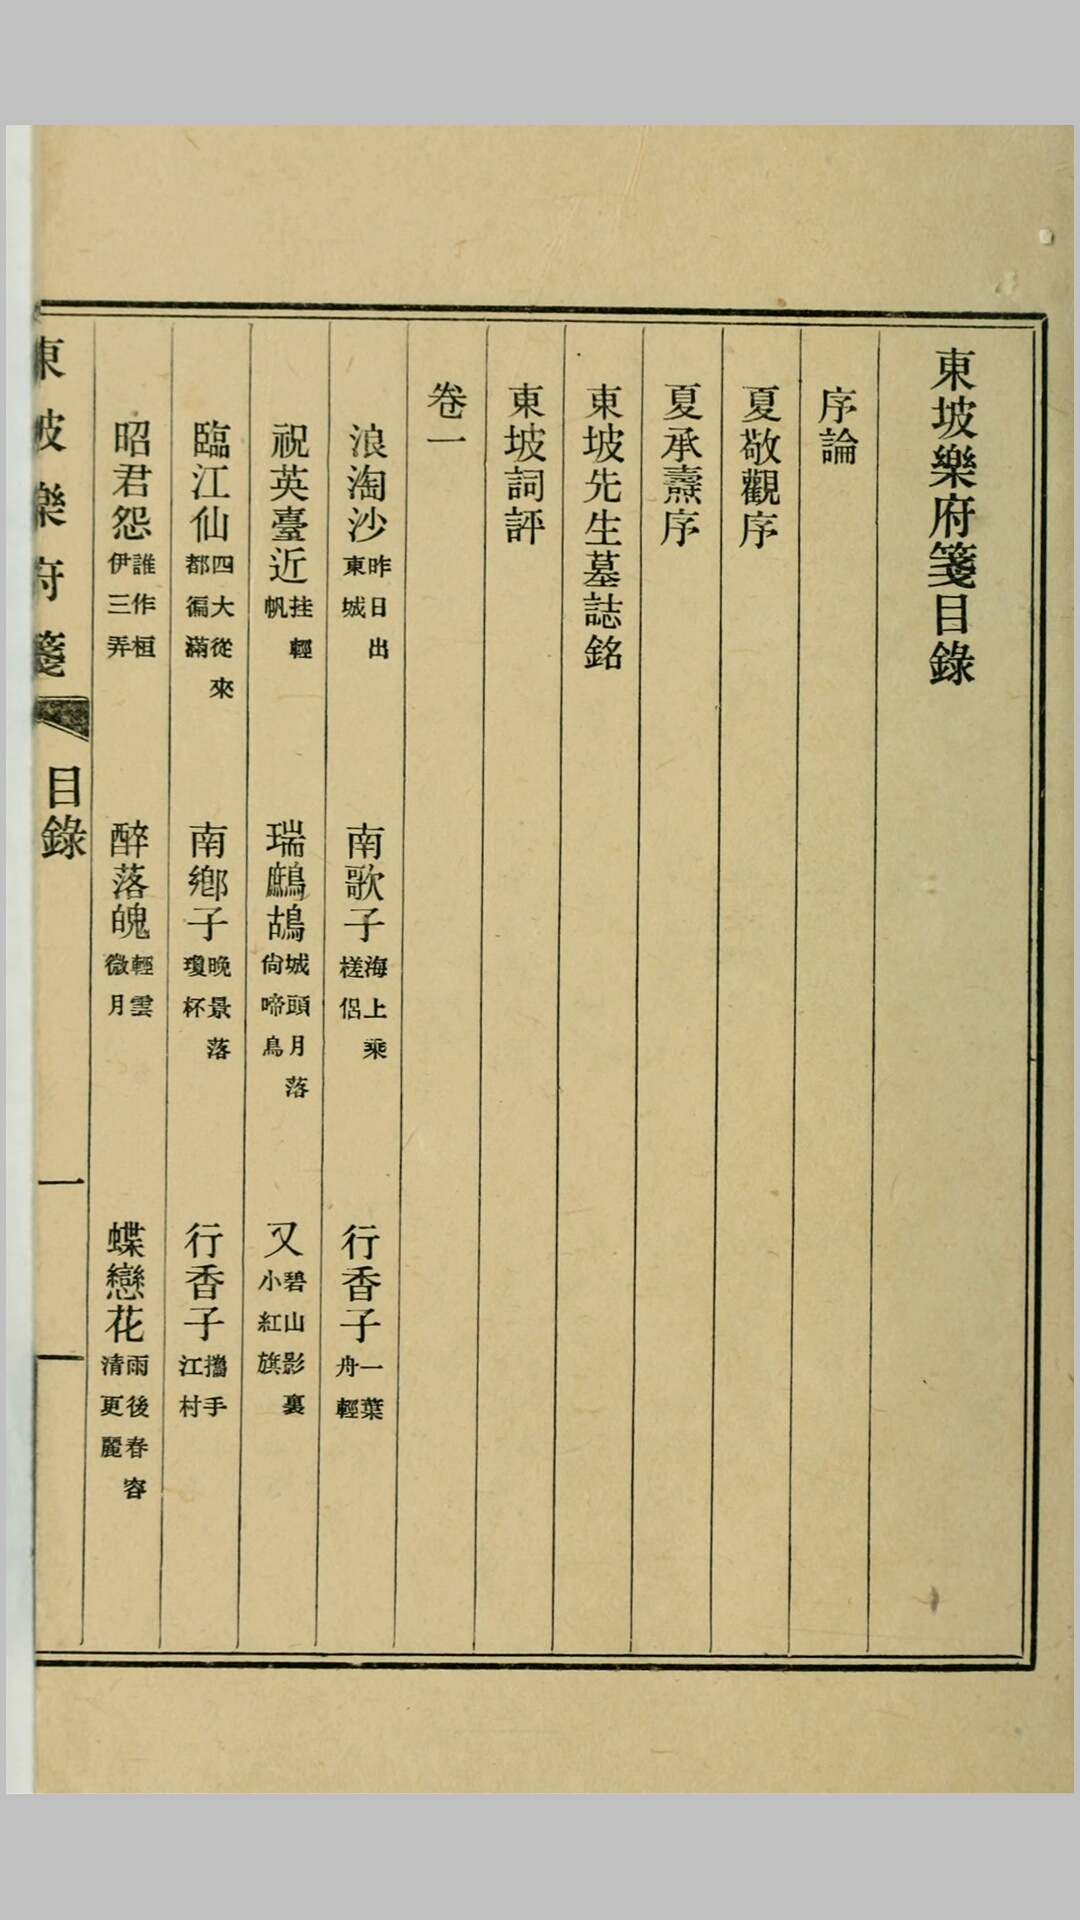 東坡樂府箋目錄
序論
夏敬觀序
夏承燾序
東坡先生墓誌銘
東坡詞評
卷一
浪淘沙 昨日出東城 南歌子 海上乘槎侶 行香子 一葉舟輕
祝英臺近 挂輕帆 瑞鷓鴣 城頭月落尙啼烏 又 碧山影裏小紅旗
臨江仙 四大從來都徧滿 南鄕子 晚景落瓊杯 行香子 攜手江村
昭君怨 誰作桓伊三弄 醉落魄 輕雲微月 蝶戀花 雨後春容清更麗
東坡樂府箋 目錄 一